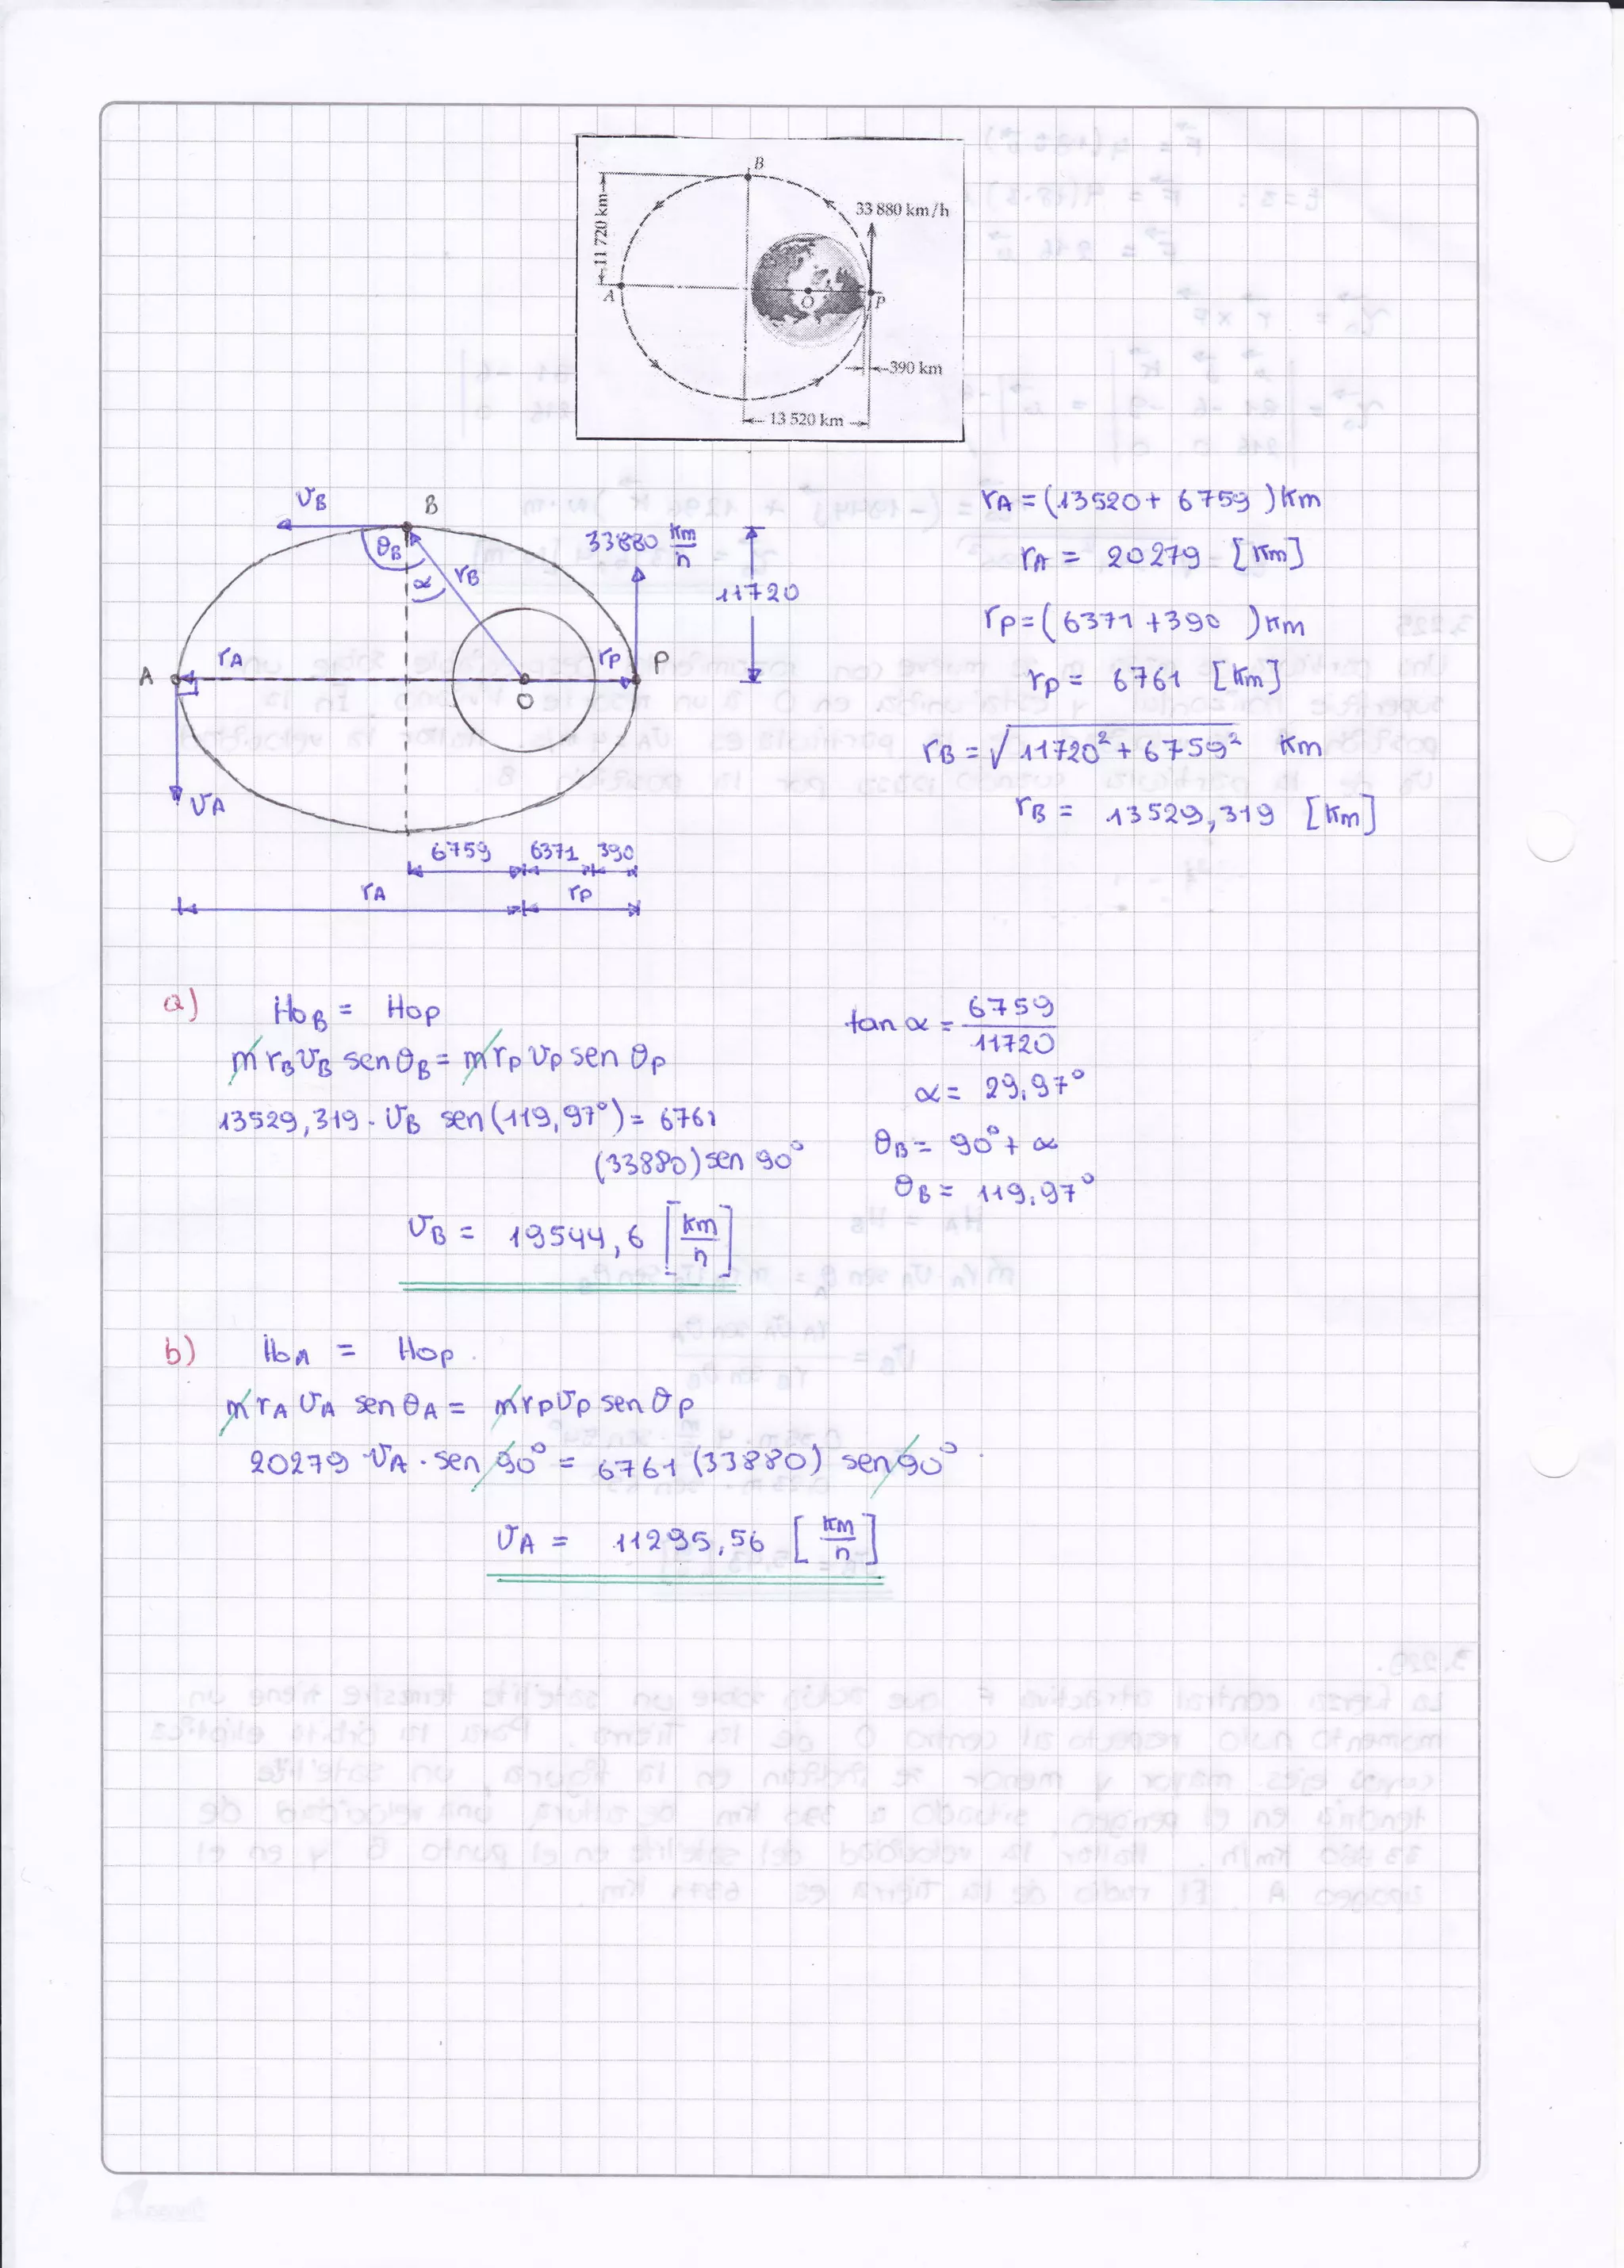 B
33 880 km/h
11 720 km
A
O
P
390 km
13 520 km
vB
B
θB
α
rB
33880 km/h
11720
A
rA
rP
P
O
vA
6759
6371
390
rA
rP
rA = (13520 + 6759 ) km
rA = 20279 [km]
rP = ( 6371 + 390 ) km
rP = 6761 [km]
rB = √11720² + 6759² km
rB = 13529,319 [km]
a)
HoB = HoP
m rB vB sen θB = m rP vP sen θP
13529,319 · vB sen (119,97°) = 6761
(33880) sen 90°
vB = 19544,6 [km/h]
tan α = 6759/11720
α = 29,97°
θB = 90° + α
θB = 119,97°
b)
HoA = HoP
m rA vA sen θA = m rP vP sen θP
20279 · vA · sen 90° = 6761 (33880) sen 90°
vA = 11295,56 [km/h]